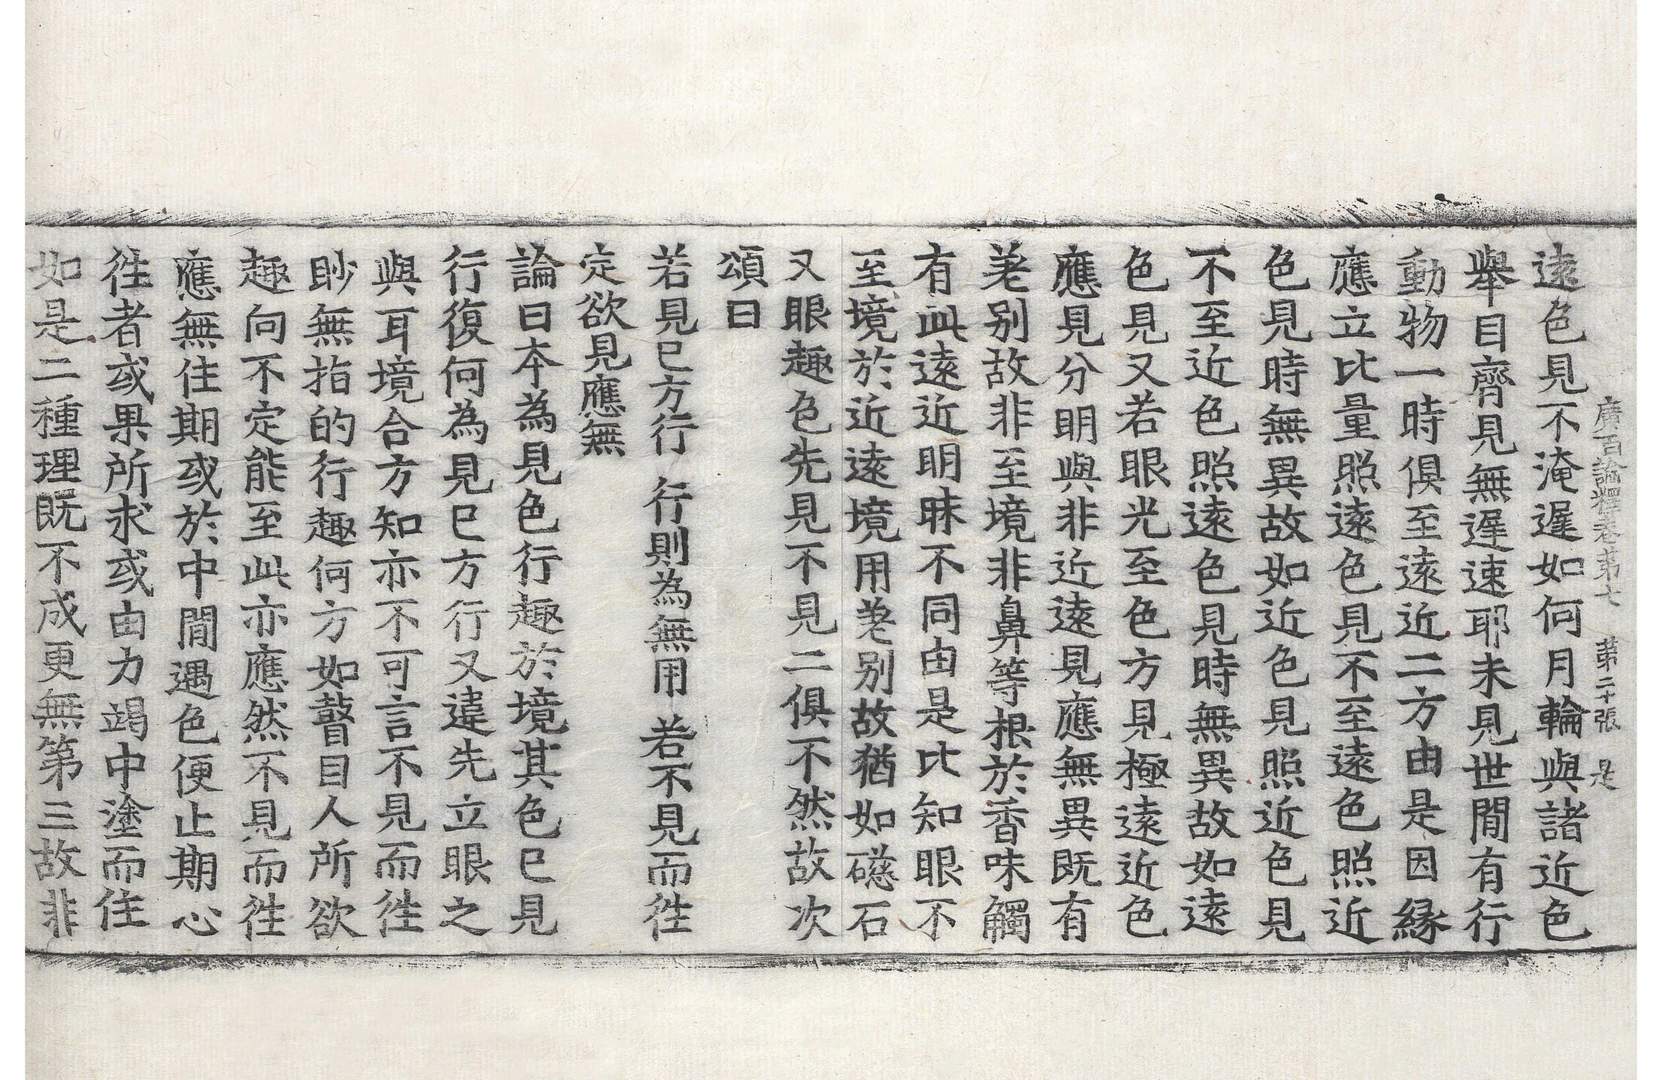 廣百論釋卷第七 第二十張 是
遠色見不淹遲如何月輪與諸近色
舉目齊見無遲速耶未見世閒有行
動物一時俱至遠近二方由是因緣
應立比量照遠色見不至遠色照近
色見時無異故如近色見照近色見
不至近色照遠色見時無異故如遠
色見又若眼光至色方見極遠近色
應見分明與非近遠見應無異既有
差別故非至境非鼻等根於香味觸
有此遠近明昧不同由是比知眼不
至境於近遠境用差別故猶如礠石
又眼趣色先見不見二俱不然故次
頌曰
若見已方行 行則為無用 若不見而徃
定欲見應無
論曰本為見色行趣於境其色已見
行復何為見已方行又違先立眼之
與耳境合方知亦不可言不見而徃
眇無指的行趣何方如瞽目人所欲
趣向不定能至此亦應然不見而徃
應無住期或於中閒遇色便止期心
徃者或果所求或由力竭中塗而住
如是二種理既不成更無第三故非